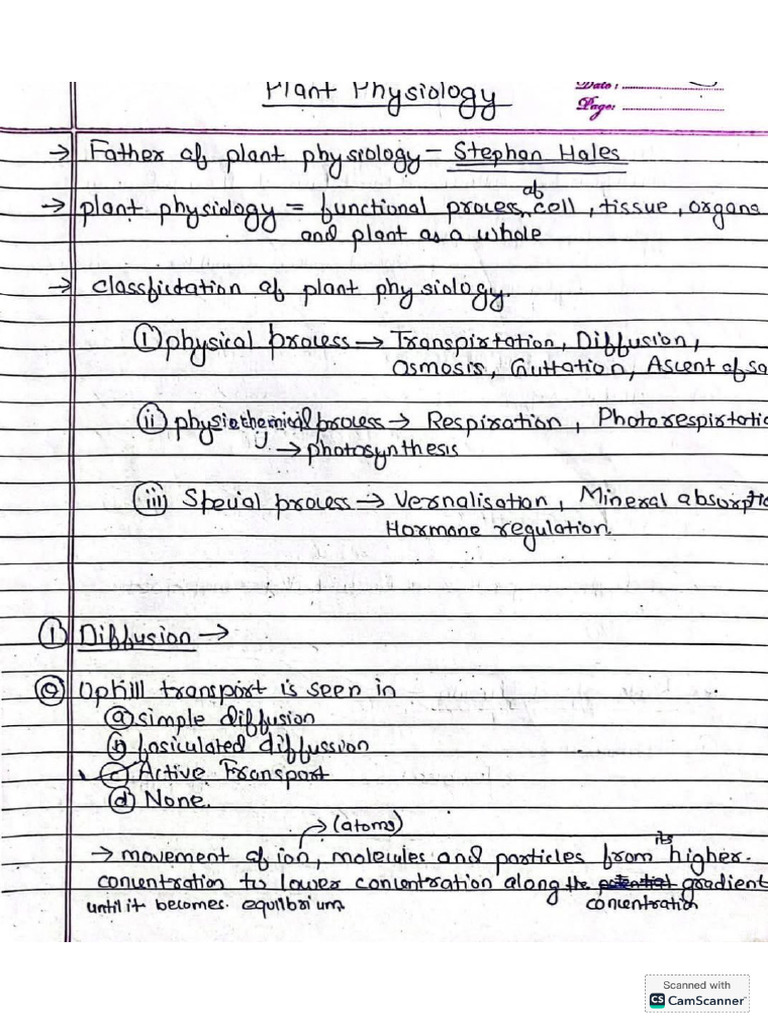 Plant Physiology
Date :
Page:
→ Father of plant physiology - Stephan Hales
→ plant physiology = functional process of cell, tissue, organs
and plant as a whole
→ classfictation of plant physiology.
(i) physical process → Transpirtation, Diffusion,
Osmosis, Guttation, Ascent of sa
(ii) physiochemical process → Respiration, Photorespirtatio
→ photosynthesis
(iii) Special process → Vernalisation, Mineral absorptio
Hormone regulation.
(1) Diffusion →
(Q) Uphill transport is seen in
(a) simple diffusion
(b) fasiculated diffussion
(c) Active Transport
(d) None.
→ (atoms)
→ movement of ion, molecules and particles from its higher
concentration to lower concentration along the potential gradient
until it becomes equilbrium. concentration
Scanned with
CS CamScanner